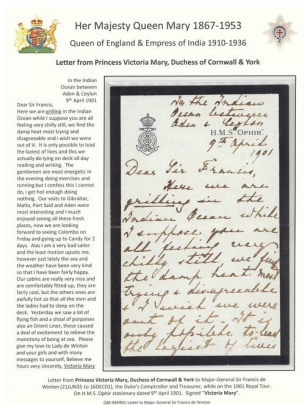 Her Majesty Queen Mary 1867-1953
Queen of England & Empress of India 1910-1936
Letter from Princess Victoria Mary, Duchess of Cornwall & York
In the Indian
Ocean between
Aden & Ceylon
9th April 1901
Dear Sir Francis,
Here we are grilling in the Indian
Ocean while I suppose you are all
feeling very chilly still, we find the
damp heat most trying and
disagreeable and I wish we were
out of it. It is only possible to lead
the laziest of lives and this we
actually do lying on deck all day
reading and writing. The
gentlemen are most energetic in
the evening doing exercises and
running but I confess this I cannot
do, I get hot enough doing
nothing. Our visits to Gibraltar,
Malta, Port Said and Aden were
most interesting and I much
enjoyed seeing all these fresh
places, now we are looking
forward to seeing Colombo on
Friday and going up to Kandy for 2
days. Alas I am a very bad sailor
and the least motion upsets me,
however just lately the sea and
the weather have been very kind
so that I have been fairly happy.
Our cabins are really very nice and
are comfortably fitted up, they are
fairly cool, but the others ones are
awfully hot so that all the men and
the ladies had to sleep on the
deck. Yesterday we saw a lot of
flying fish and a shoal of porpoises
also an Orient Liner, these caused
a deal of excitement to relieve the
monotony of being at sea. Please
give my love to Lady de Winton
and your girls and with many
messages to yourself, Believe me
Yours very sincerely, Victoria Mary
In the Indian
Ocean between
Aden & Ceylon
H.M.S. OPHIR.
9th April
1901
Dear Sir Francis
Here we are
grilling in the
Indian Ocean while
I suppose you are
all feeling very
chilly still, we find
the damp heat most
trying & disagreeable
& I wish we were
out of it. It is
only possible to lead
the laziest of lives
Letter from Princess Victoria Mary, Duchess of Cornwall & York to Major-General Sir Francis de
Winton (21JUN35 to 16DEC01), the Duke's Comptroller and Treasurer, while on the 1901 Royal Tour.
On H.M.S. Ophir stationery dated 9th April 1901. Signed "Victoria Mary".
Letter to Major-General Sir Francis de Winton